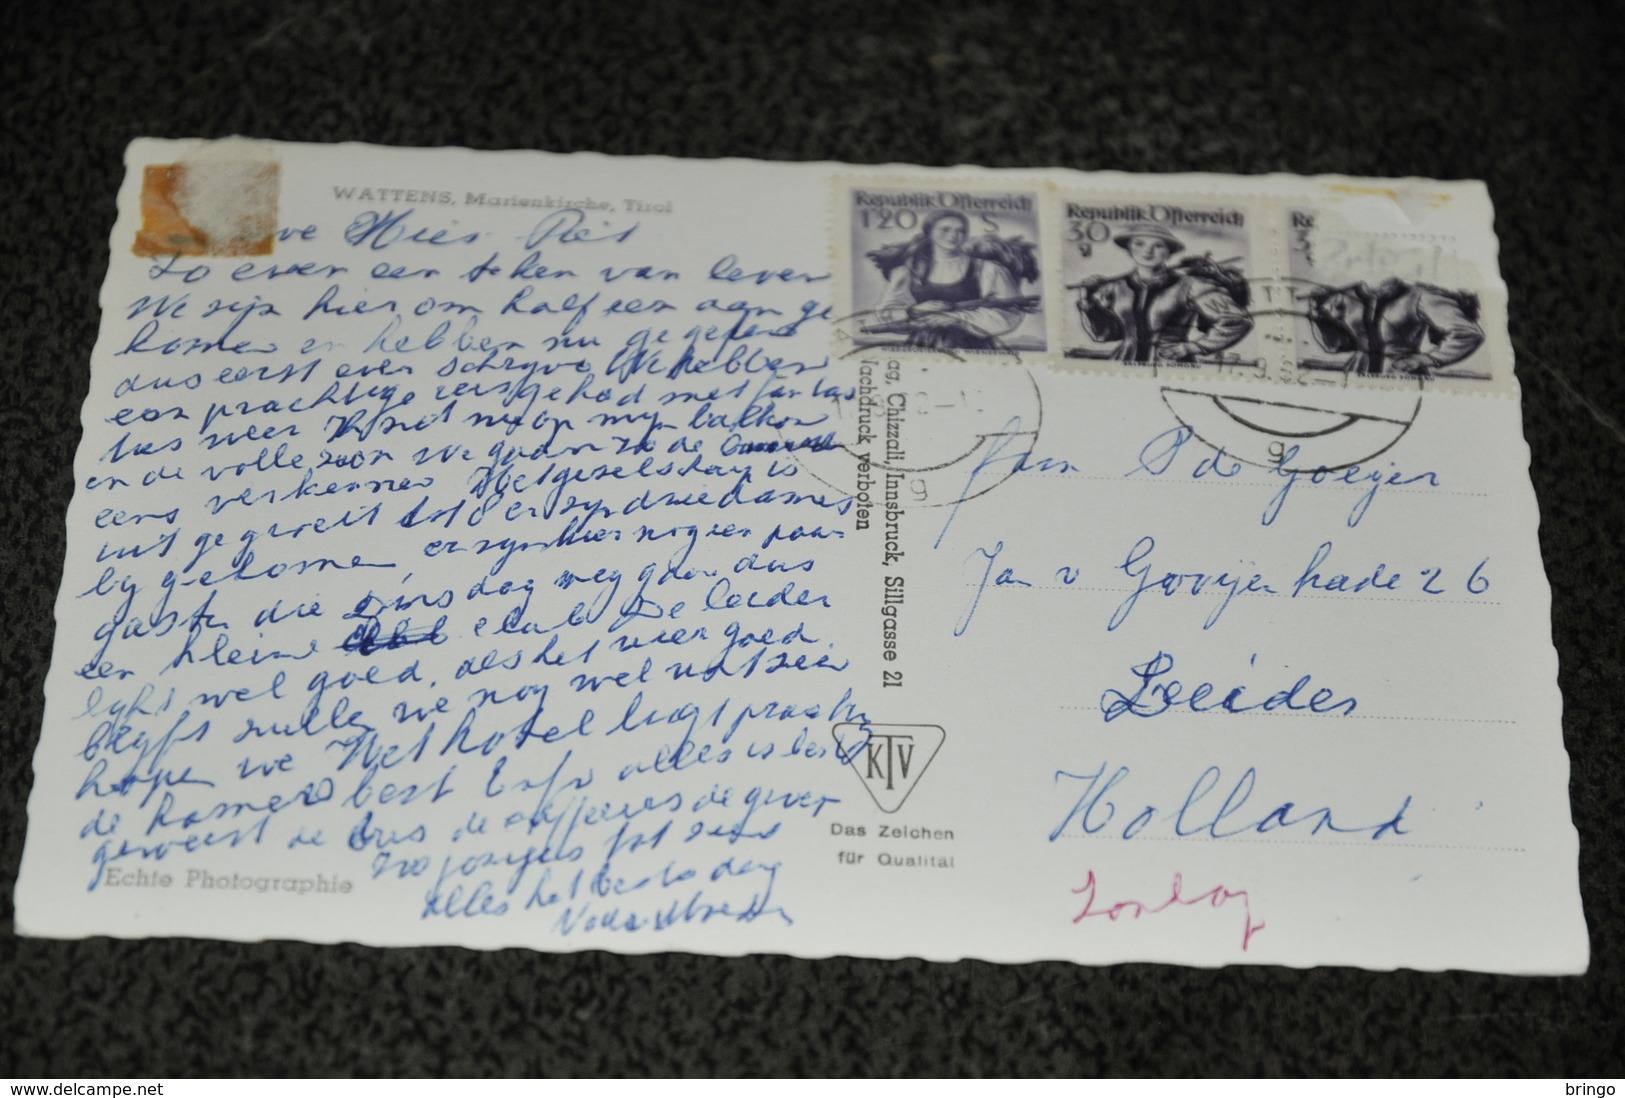 WATTENS, Marienkirche, Tirol
Zo even een teken van leven
We zijn hier om half een aan ge
komen en hebben nu gegeten
dus eerst even schryve We hebben
een prachtige reis gehad met fantas
ties weer nu op myn balkon
en de volle zon We gaan zo de
eens verkennen Het geselschap is
uit gegroeit tot 8 er zyn drie dames
by gekomen er zyn hier nog een paar
gasten die Dinsdag weg gaan dus
een kleine club De leider
lykt wel goed, als het weer goed
blyft zulle we nog wel wat zien
hopen we Het hotel liegt prachtig
de kamers best alles is best
geweest de bus de
alles het beste dag
Echte Photographie
Republik Österreich
1'20 S
Republik Österreich
30 g
Re
3
17.9.
g
g
ag, Chizzali, Innsbruck, Sillgasse 21
Nachdruck verboten
KTV
Das Zeichen
für Qualität
Fam P de Goeijer
Jan v Gooijenkade 26
Leiden
Holland
delcampe.net
bringo